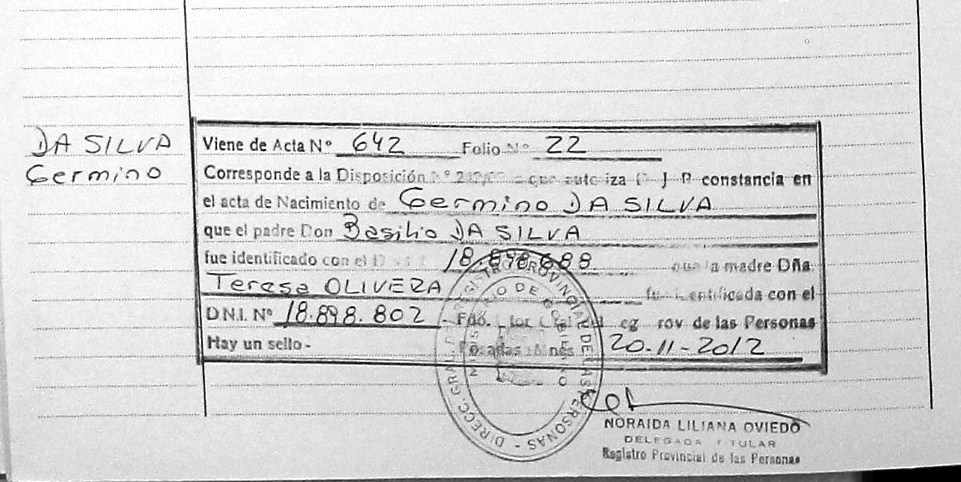 DA SILVA
Germino
Viene de Acta Nº 642 Folio Nº 22
Corresponde a la Disposición Nº que autoriza constancia en
el acta de Nacimiento de Germino DA SILVA
que el padre Don Basilio DA SILVA
fue identificado con el 18.898.688 que la madre Dña
Teresa OLIVERA fue identificada con el
D.N.I. Nº 18.898.802 Fdo. de las Personas
Hay un sello - Posadas Mnes 20-11-2012
DIRECC. GRAL. DEL REGISTRO PROVINCIAL DE LAS PERSONAS
MINISTERIO DE GOBIERNO
NORAIDA LILIANA OVIEDO
DELEGADA TITULAR
Registro Provincial de las Personas